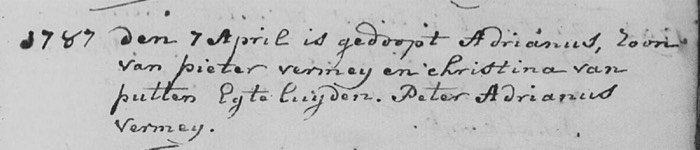 1787 den 7 April is gedoopt Adrianus, zoon
van pieter vermey en christina van
putten Egte luijden. Peter Adrianus
vermey.